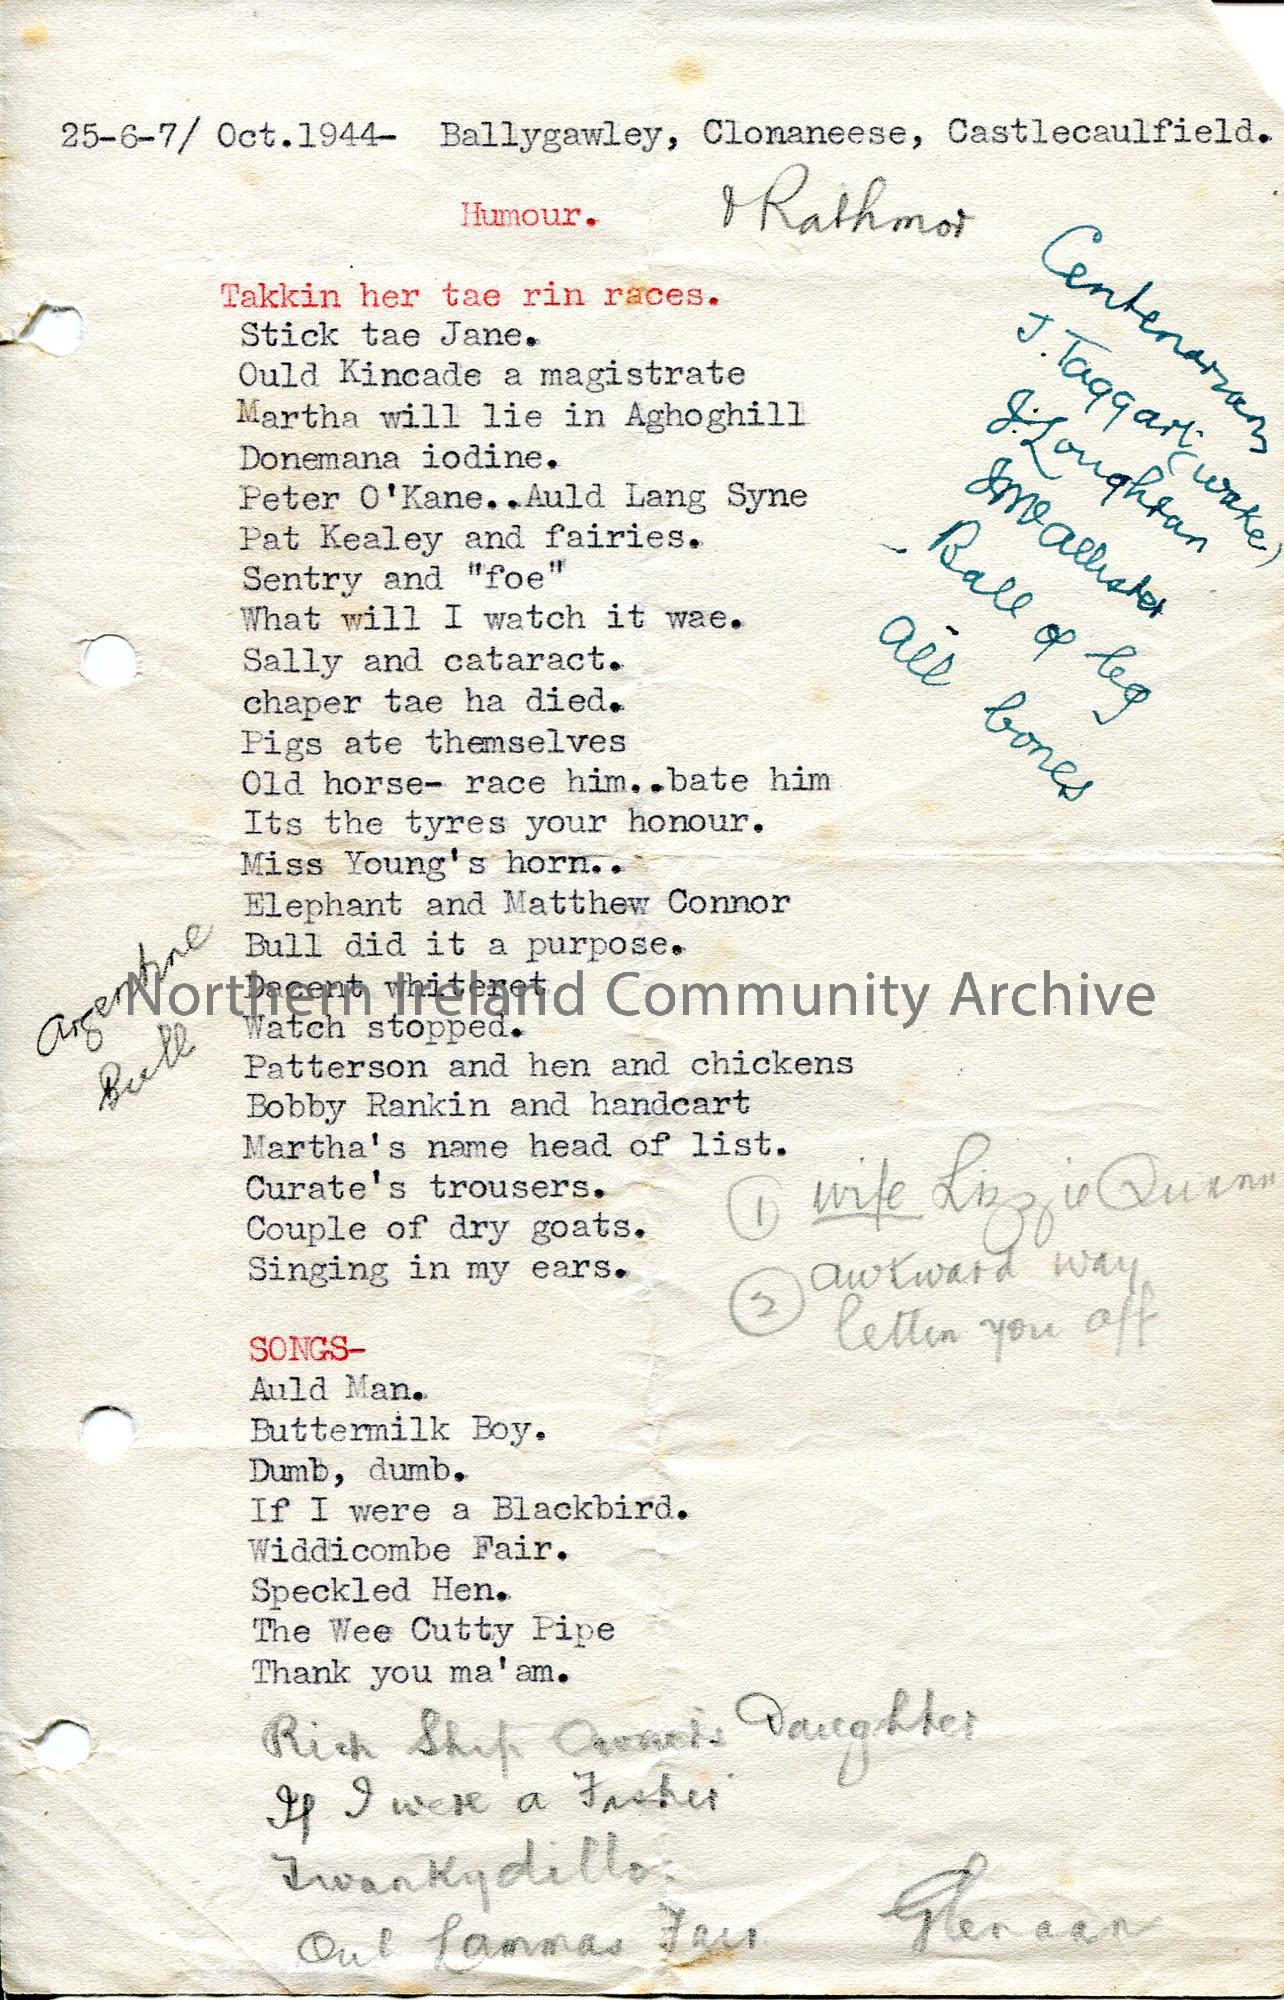 25-6-7/ Oct.1944- Ballygawley, Clonaneese, Castlecaulfield.
& Rathmor
Humour.
Takkin her tae rin races.
Stick tae Jane.
Ould Kincade a magistrate
Martha will lie in Aghoghill
Donemana iodine.
Peter O'Kane..Auld Lang Syne
Pat Kealey and fairies.
Sentry and "foe"
What will I watch it wae.
Sally and cataract.
chaper tae ha died.
Pigs ate themselves
Old horse- race him..bate him
Its the tyres your honour.
Miss Young's horn..
Elephant and Matthew Connor
Bull did it a purpose.
Dacent whiteret
Watch stopped.
Patterson and hen and chickens
Bobby Rankin and handcart
Martha's name head of list.
Curate's trousers.
Couple of dry goats.
Singing in my ears.
Centenarians
J. Taggart (wake)
J. Loughran
J McAllister
- Ball of leg
all bones
Argentine
Bull
Northern Ireland Community Archive
① wife Lizzie Quinn
② awkward way
lettin you off
SONGS-
Auld Man.
Buttermilk Boy.
Dumb, dumb.
If I were a Blackbird.
Widdicombe Fair.
Speckled Hen.
The Wee Cutty Pipe
Thank you ma'am.
Rich Ship Owner's Daughter
If I were a
Twankydillo
Oul Lammas Fair
Glenaan